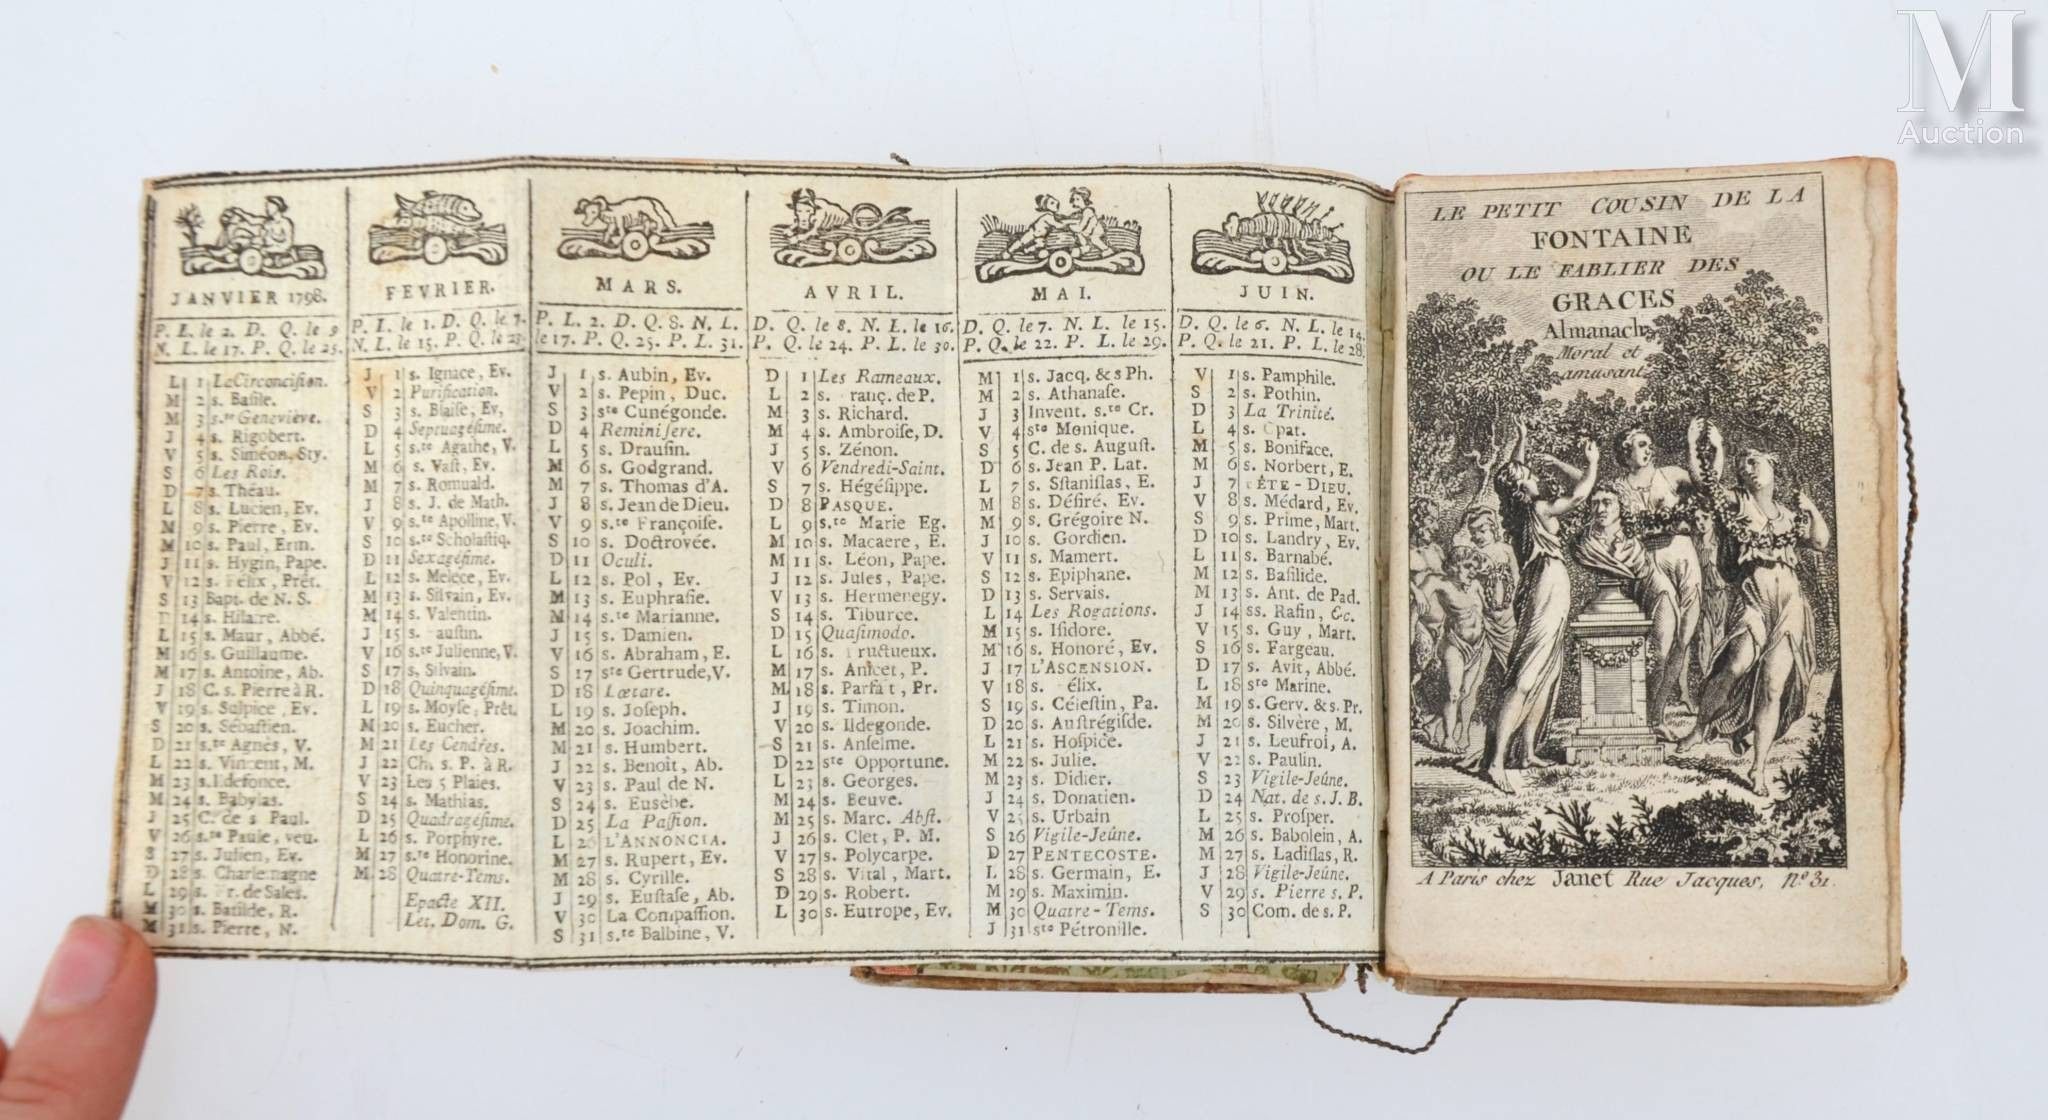 JANVIER 1798.
P. L. le 2. D. Q. le 9
N. L. le 17. P. Q. le 25.
L 1 La Circoncision.
M 2 s. Basile.
M 3 s.te Geneviève.
J 4 s. Rigobert.
V 5 s. Siméon, Sty.
S 6 Les Rois.
D 7 s. Théau.
L 8 s. Lucien, Ev.
M 9 s. Pierre, Ev.
M 10 s. Paul, Erm.
J 11 s. Hygin, Pape.
V 12 s. Félix, Prêt.
S 13 Bapt. de N. S.
D 14 s. Hilaire.
L 15 s. Maur, Abbé.
M 16 s. Guillaume.
M 17 s. Antoine, Ab.
J 18 C. s. Pierre à R.
V 19 s. Sulpice, Ev.
S 20 s. Sébastien.
D 21 s.te Agnès, V.
L 22 s. Vincent, M.
M 23 s. Ildefonce.
M 24 s. Babylas.
J 25 C. de s Paul.
V 26 s.te Paule, veu.
S 27 s. Julien, Ev.
D 28 s. Charlemagne
L 29 s. Fr. de Sales.
M 30 s. Batilde, R.
M 31 s. Pierre, N.
FEVRIER.
P. L. le 1. D. Q. le 7.
N. L. le 15. P. Q. le 23.
J 1 s. Ignace, Ev.
V 2 Purification.
S 3 s. Blaise, Ev,
D 4 Septuagésime.
L 5 s.te Agathe, V.
M 6 s. Vast, Ev.
M 7 s. Romuald.
J 8 s. J. de Math.
V 9 s.te Apolline, V.
S 10 s.te Scholastiq.
D 11 Sexagésime.
L 12 s. Melèce, Ev.
M 13 s. Silvain, Ev.
M 14 s. Valentin.
J 15 s. austin.
V 16 s.te Julienne, V.
S 17 s. Silvain.
D 18 Quinquagésime.
L 19 s. Moyse, Prêt.
M 20 s. Eucher.
M 21 Les Cendres.
J 22 Ch. s. P. à R.
V 23 Les 5 Plaies.
S 24 s. Mathias.
D 25 Quadragésime.
L 26 s. Porphyre.
M 27 s.te Honorine.
M 28 Quatre-Tems.
Epacte XII.
Let. Dom. G.
MARS.
P. L. 2. D. Q. 8. N. L.
le 17. P. Q. 25. P. L. 31.
J 1 s. Aubin, Ev.
V 2 s. Pepin, Duc.
S 3 s.te Cunégonde.
D 4 Reminisere.
L 5 s. Drausin.
M 6 s. Godgrand.
M 7 s. Thomas d'A.
J 8 s. Jean de Dieu.
V 9 s.te Françoise.
S 10 s. Doctrovée.
D 11 Oculi.
L 12 s. Pol, Ev.
M 13 s. Euphrasie.
M 14 s.te Marianne.
J 15 s. Damien.
V 16 s. Abraham, E.
S 17 ste Gertrude, V.
D 18 Lœtare.
L 19 s. Joseph.
M 20 s. Joachim.
M 21 s. Humbert.
J 22 s. Benoît, Ab.
V 23 s. Paul de N.
S 24 s. Eusèbe.
D 25 La Passion.
L 26 L'ANNONCIA.
M 27 s. Rupert, Ev.
M 28 s. Cyrille.
J 29 s. Eustase, Ab.
V 30 La Compassion.
S 31 s.te Balbine, V.
AVRIL.
D. Q. le 8. N. L. le 16.
P. Q. le 24. P. L. le 30.
D 1 Les Rameaux.
L 2 s. ranç. de P.
M 3 s. Richard.
M 4 s. Ambroise, D.
J 5 s. Zénon.
V 6 Vendredi-Saint.
S 7 s. Hégésippe.
D 8 PASQUE.
L 9 s.te Marie Eg.
M 10 s. Macaere, E.
M 11 s. Léon, Pape.
J 12 s. Jules, Pape.
V 13 s. Hermenegy.
S 14 s. Tiburce.
D 15 Quasimodo.
L 16 s. Fructueux.
M 17 s. Anicet, P.
M. 18 s. Parfait, Pr.
J 19 s. Timon.
V 20 s. Ildegonde.
S 21 s. Anselme.
D 22 ste Opportune.
L 23 s. Georges.
M 24 s. Beuve.
M 25 s. Marc. Abst.
J 26 s. Clet, P. M.
V 27 s. Polycarpe.
S 28 s. Vital, Mart.
D 29 s. Robert.
L 30 s. Eutrope, Ev.
MAI.
D. Q. le 7. N. L. le 15.
P. Q. le 22. P. L. le 29.
M 1 s. Jacq. & s Ph.
M 2 s. Athanase.
J 3 Invent. s.te Cr.
V 4 ste Monique.
S 5 C. de s. August.
D 6 s. Jean P. Lat.
L 7 s. Sstanislas, E.
M 8 s. Désiré, Ev.
M 9 s. Grégoire N.
J 10 s. Gordien.
V 11 s. Mamert.
S 12 s. Epiphane.
D 13 s. Servais.
L 14 Les Rogations.
M 15 s. Isidore.
M 16 s. Honoré, Ev.
J 17 L'ASCENSION.
V 18 s. élix.
S 19 s. Célestin, Pa.
D 20 s. Austrégisde.
L 21 s. Hospice.
M 22 s. Julie.
M 23 s. Didier.
J 24 s. Donatien.
V 25 s. Urbain
S 26 Vigile-Jeûne.
D 27 PENTECOSTE.
L 28 s. Germain, E.
M 29 s. Maximin.
M 30 Quatre-Tems.
J 31 ste Pétronille.
JUIN.
D. Q. le 6. N. L. le 14.
P. Q. le 21. P. L. le 28.
V 1 s. Pamphile.
S 2 s. Pothin.
D 3 La Trinité.
L 4 s. Opat.
M 5 s. Boniface.
M 6 s. Norbert, E.
J 7 FÊTE-DIEU.
V 8 s. Médard, Ev.
S 9 s. Prime, Mart.
D 10 s. Landry, Ev.
L 11 s. Barnabé.
M 12 s. Basilide.
M 13 s. Ant. de Pad.
J 14 ss. Rafin, &c.
V 15 s. Guy, Mart.
S 16 s. Fargeau.
D 17 s. Avit, Abbé.
L 18 ste Marine.
M 19 s. Gerv. & s. Pr.
M 20 s. Silvère, M.
J 21 s. Leufroi, A.
V 22 s. Paulin.
S 23 Vigile-Jeûne.
D 24 Nat. de s. J. B.
L 25 s. Prosper.
M 26 s. Babolein, A.
M 27 s. Ladislas, R.
J 28 Vigile-Jeûne.
V 29 s. Pierre s. P.
S 30 Com. de s. P.
LE PETIT COUSIN DE LA
FONTAINE
OU LE FABLIER DES
GRACES
Almanach
Moral et
amusant
A Paris chez Janet Rue Jacques, N.º 31.
M
Auction